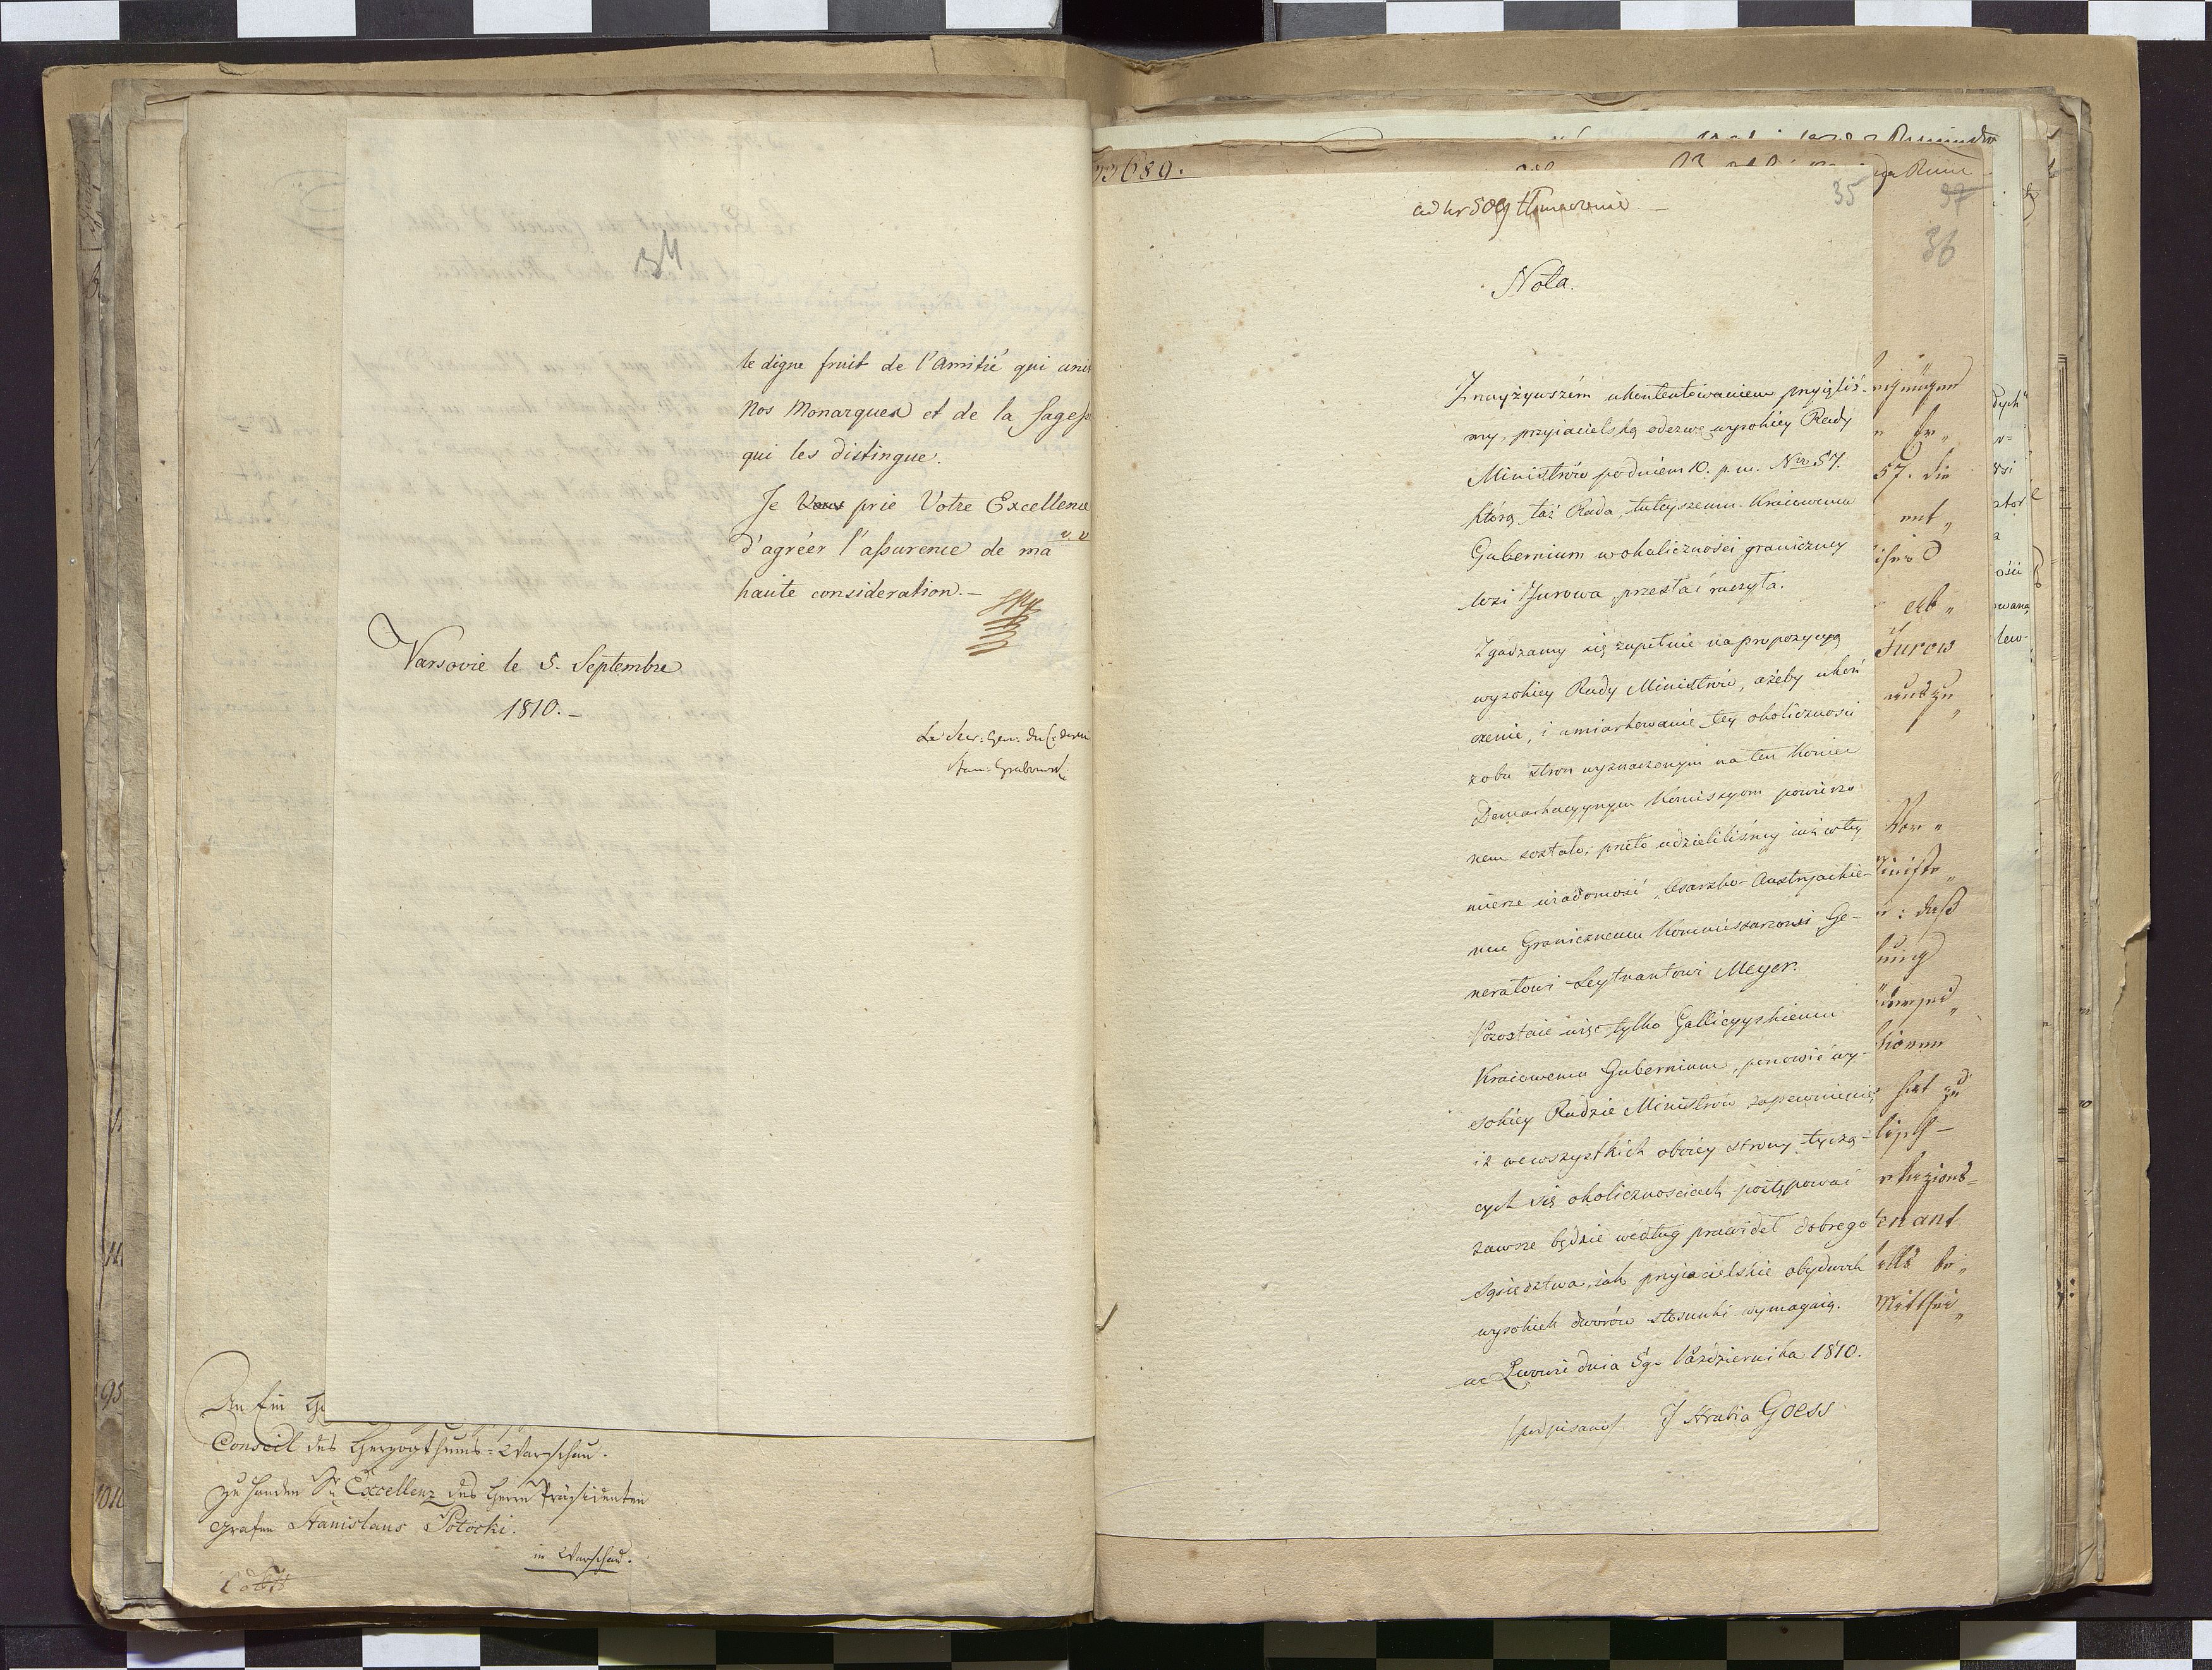 34
le digne fruit de l'Amitié qui unis
nos Monarques et de la Sagess
qui les distingue.
Je Vous prie Votre Excellence
d'agréer l'assurence de ma
haute consideration.—
Varsovie le 5. Septembre
1810.—
Le Secr: Gen: du C: des M
Stan: Grabowsk
An Ein
Conseil des Herzogthums-Warschau.
zu Handen Sr Excellenz des Herrn Präsidenten
Grafen Stanislaus Potocki.
in Warschau.
689.
ad nr 509 tłumaczenie —
35
37
36
Nota.
Z naywyższém ukontentowaniem przyięliś-
my, przyiacielską odezwę wysokiey Rady
Ministrów pod dniem 10. p. m. Nro 57.
którą taż Rada, tuteyszemu Kraiowemu
Gubernium w okoliczności graniczney
wsi Jurowa, przesłać raczyła.
Zgadzamy się zupełnie na propozycyą
wysokiey Rady Ministrów, ażeby ukoń
czenie, i umiarkowanie tey okoliczności
z obu stron wyznaczonym na ten koniec
Demarkacyynym Komissyom powierzo
nem zostało; przeto udzieliliśmy iuż w tey
mierze wiadomość, Cesarsko-Austryackie-
mu Granicznemu Kommissarzowi Ge-
nerałowi Leytnantowi Meyer.
Pozostaie więc tylko Gallicyyskiemu
Kraiowemu Gubernium, ponowić wy-
sokiey Radzie Ministrów zapewnienie,
iż we wszystkich obóiey strony tyczą-
cych się okolicznościach postępować
zawsze będzie według prawideł dobrego
sąsiedztwa, iak przyiacielskie obydwóch
wysokich dworów stosunki wymagaią.
we Lwowie dnia 5go Października 1810.
/podpisano/. J Hrabia Goess
57. die
Jurow